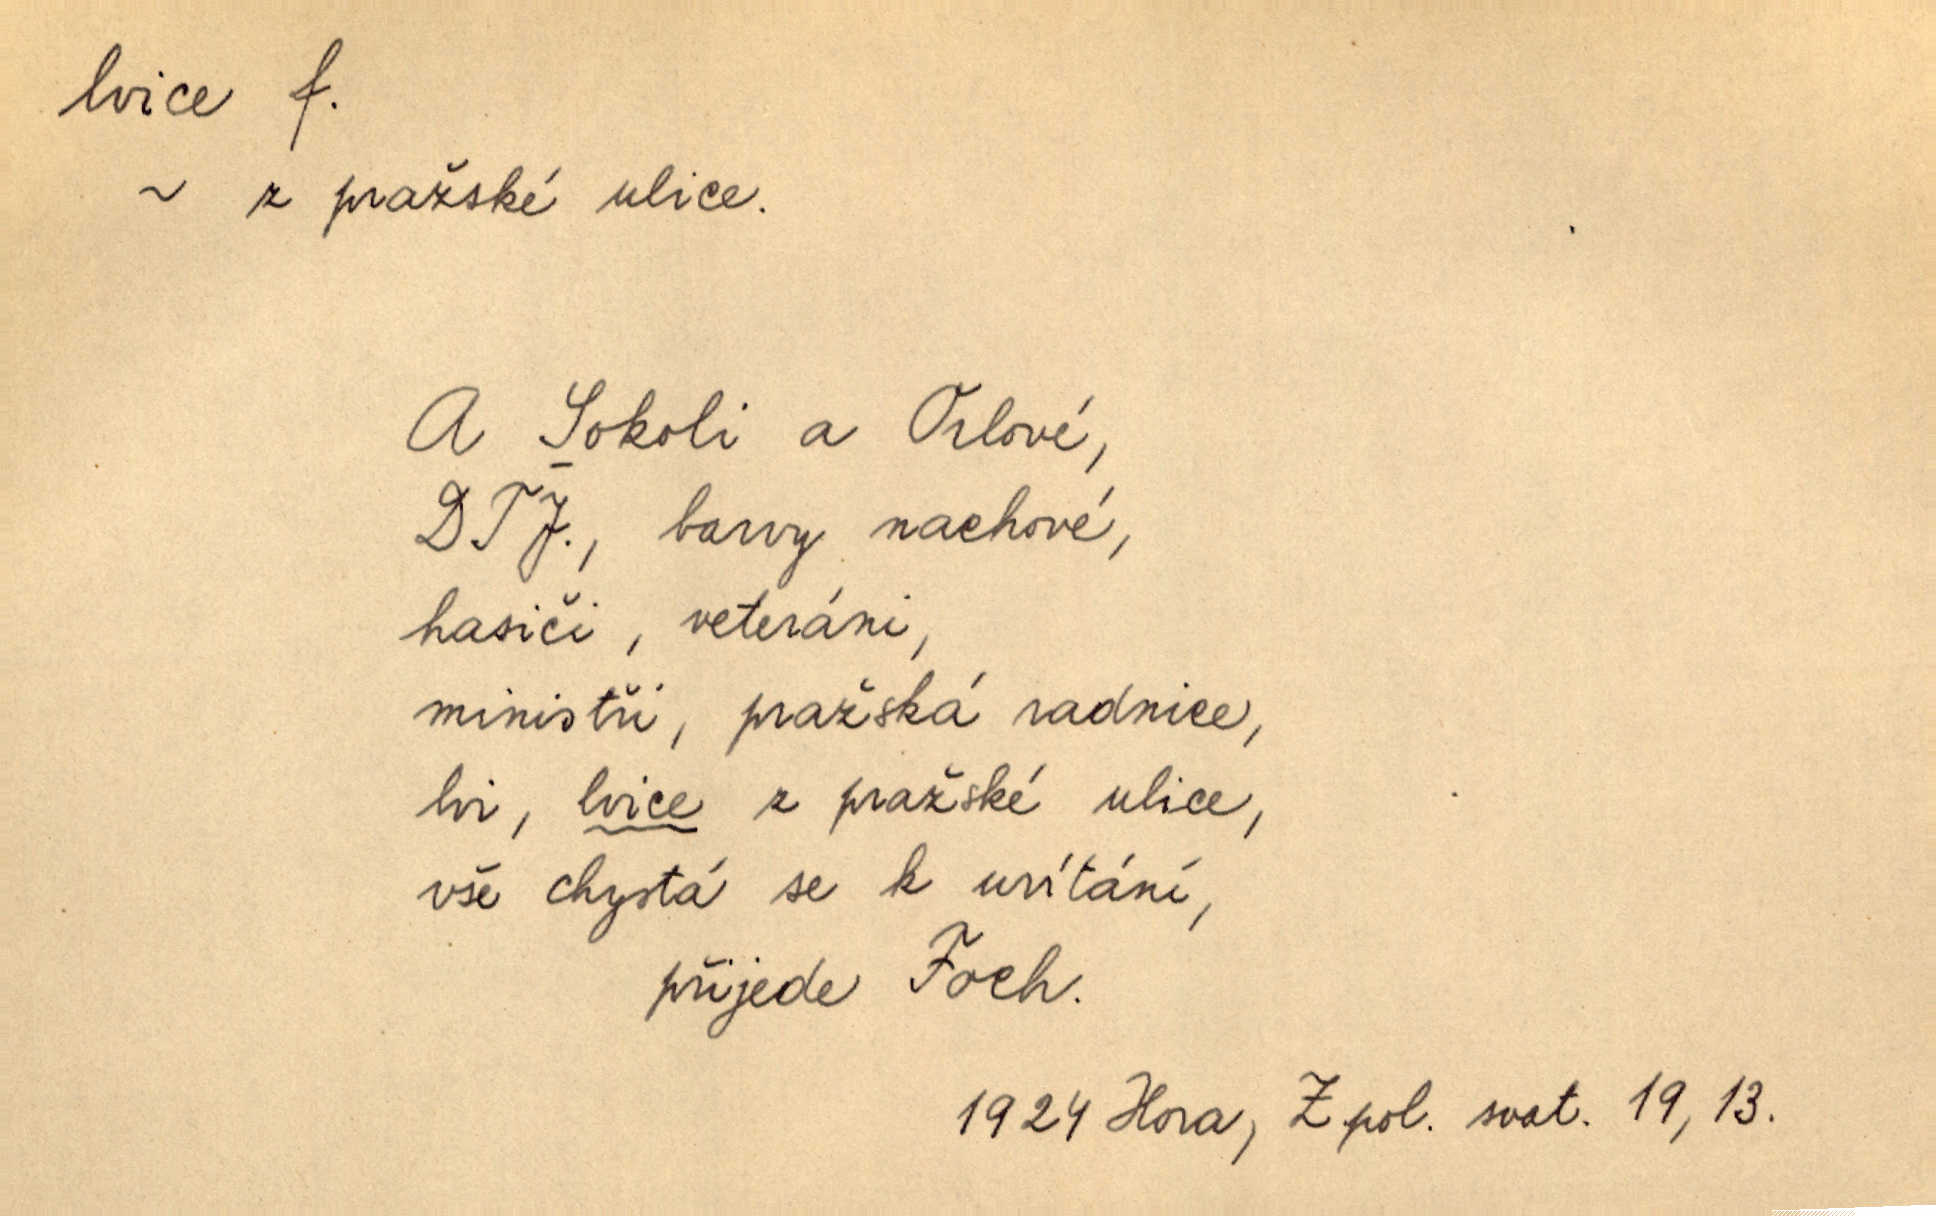 lvice f.
~ z pražské ulice.
A Sokoli a Orlové,
DTJ., barvy nachové,
hasiči, veteráni,
ministři, pražská radnice,
lvi, lvice z pražské ulice,
vše chystá se k uvítání,
přijede Foch.
1924 Hora, Z pol. svat. 19, 13.